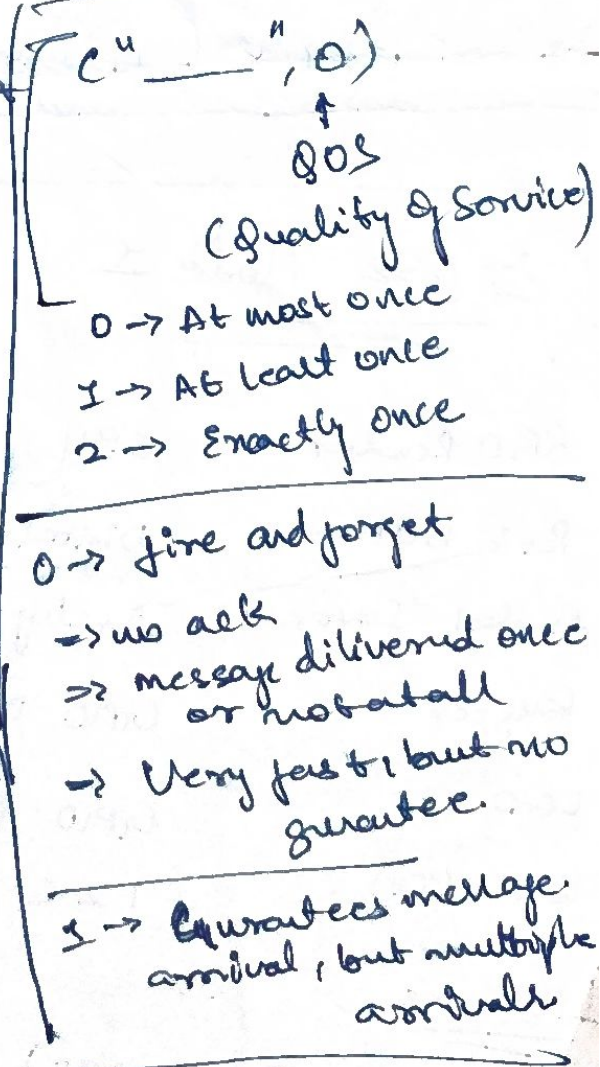 ("____", 0)
↑
QOS
(Quality of Service)
0 → At most once
1 → At least once
2 → Exactly once
0 → fire and forget
→ no ack
→ message dilivered once
or not at all
→ Very fast, but no
gurantee.
1 → Gurantees message
arrival, but multiple
arrivals